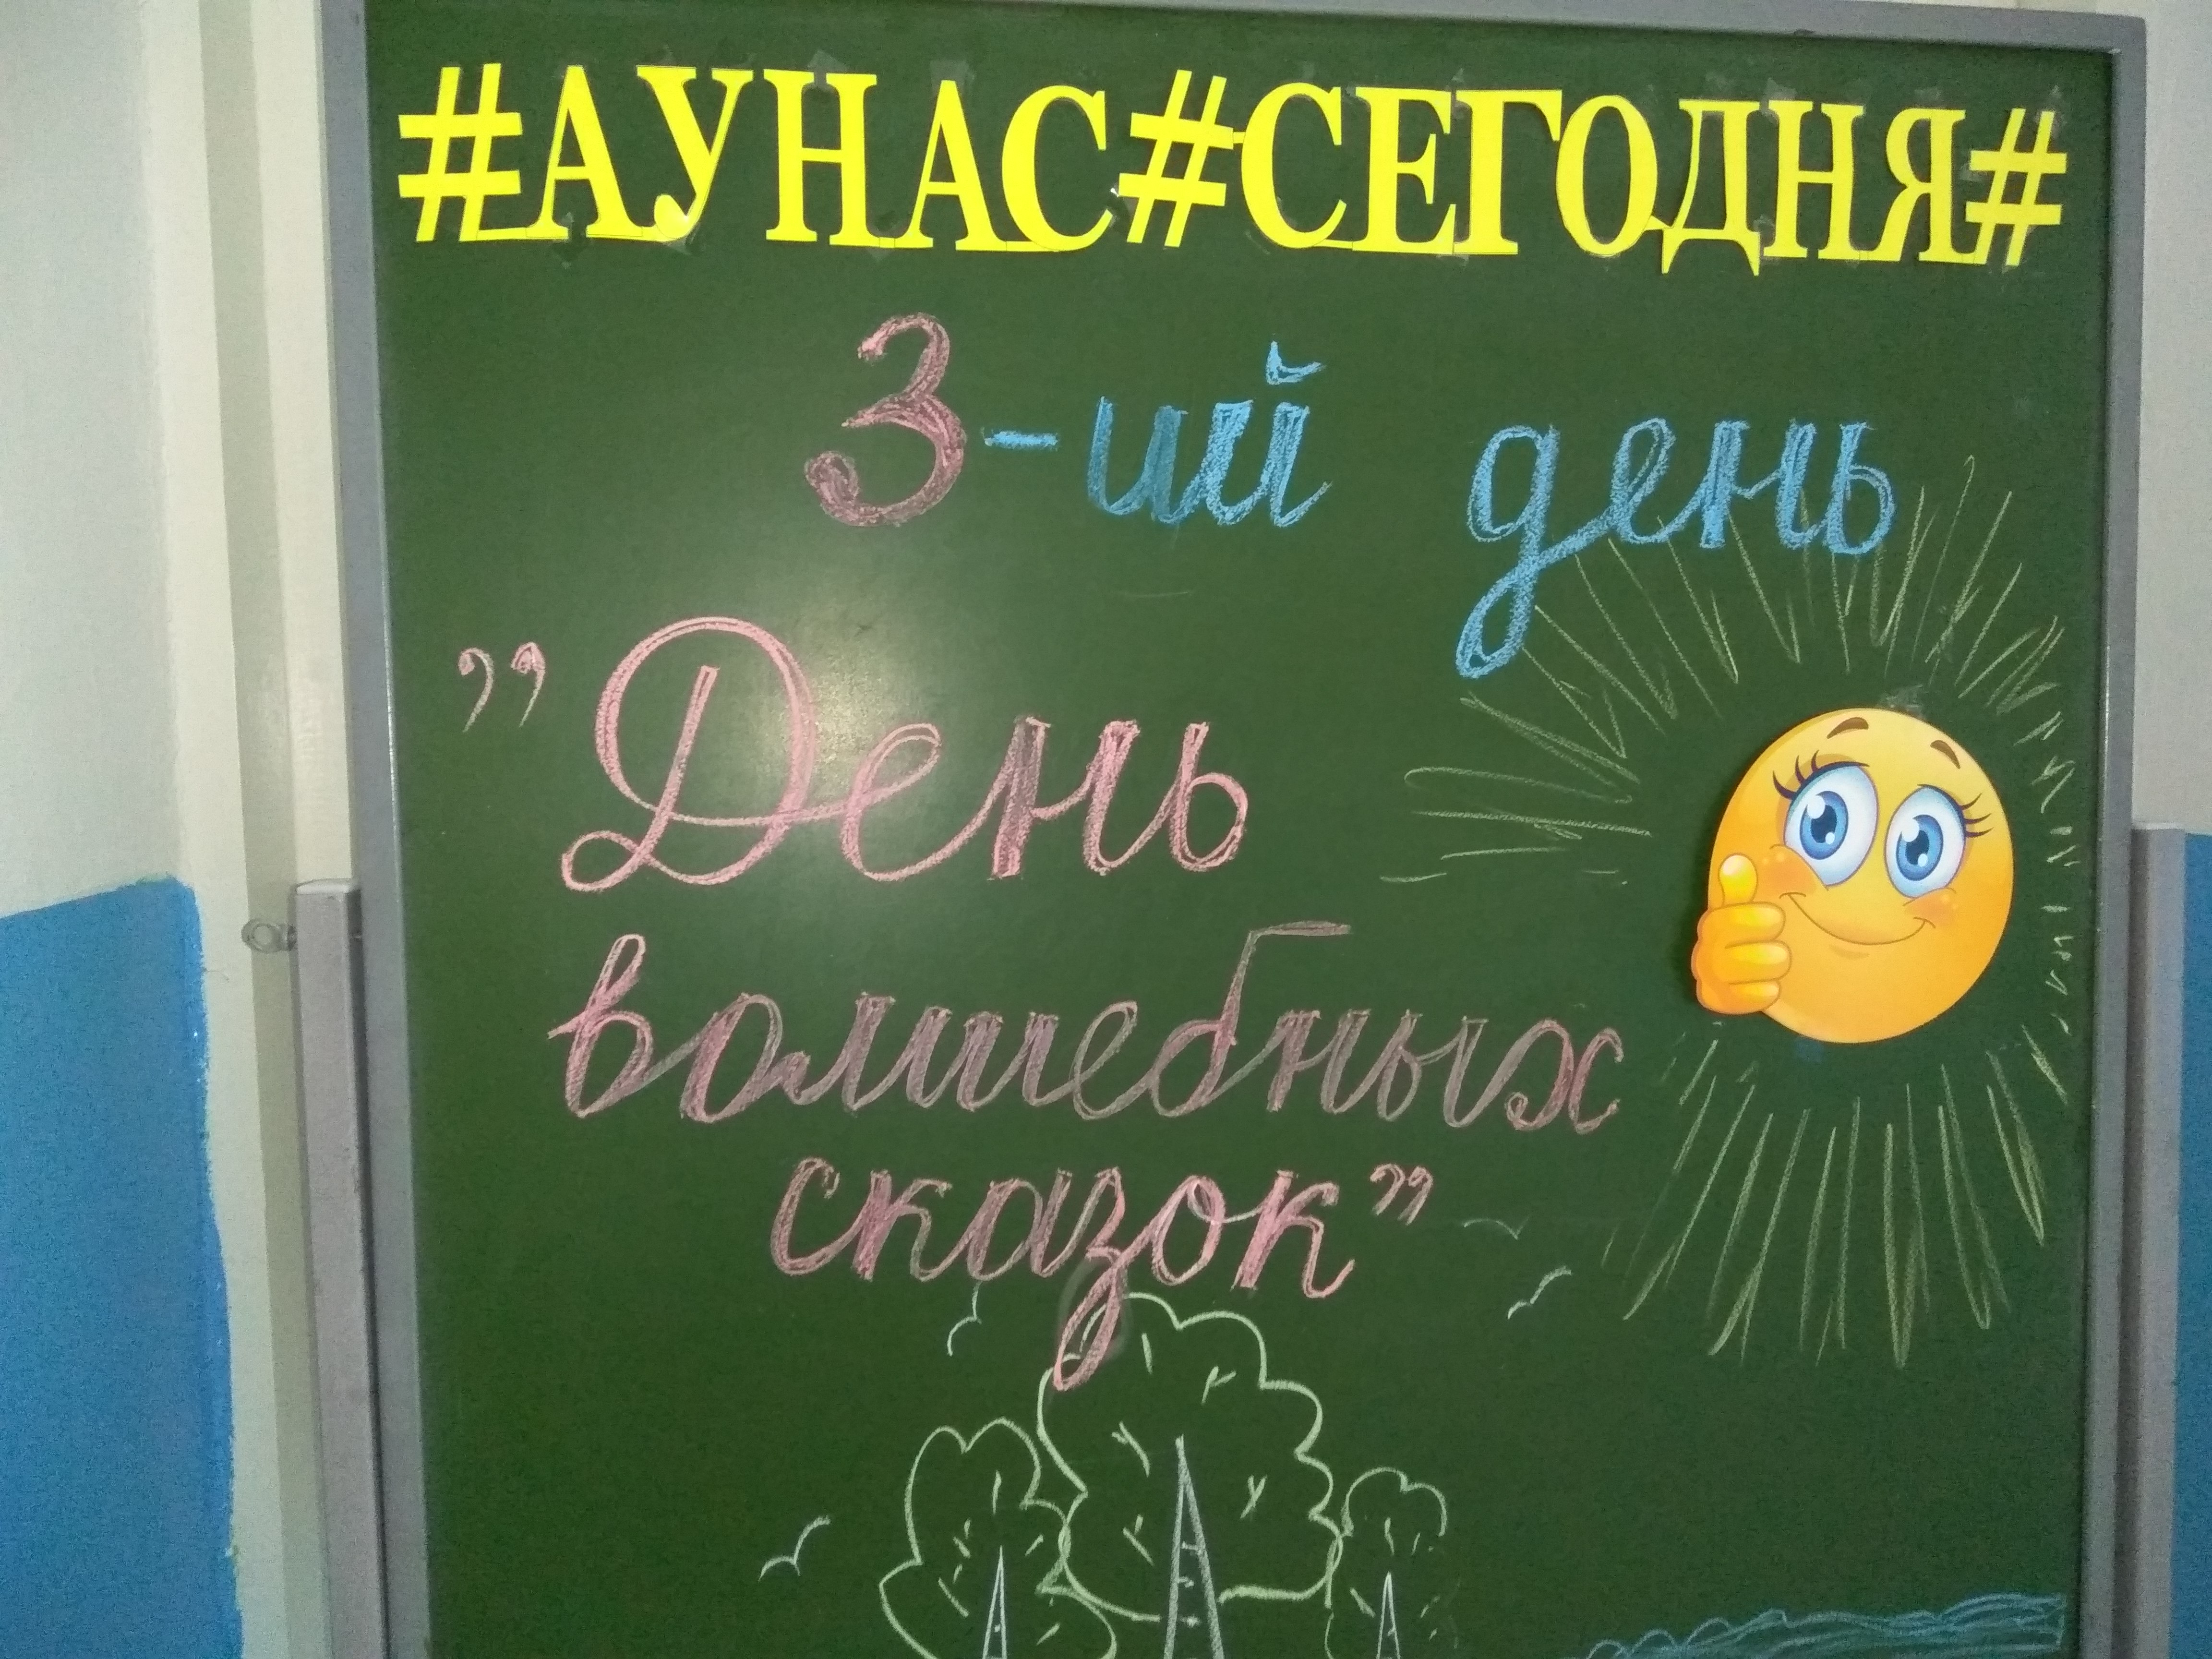 #АУНАС#СЕГОДНЯ#
3-ий день
"День
волшебных
сказок"